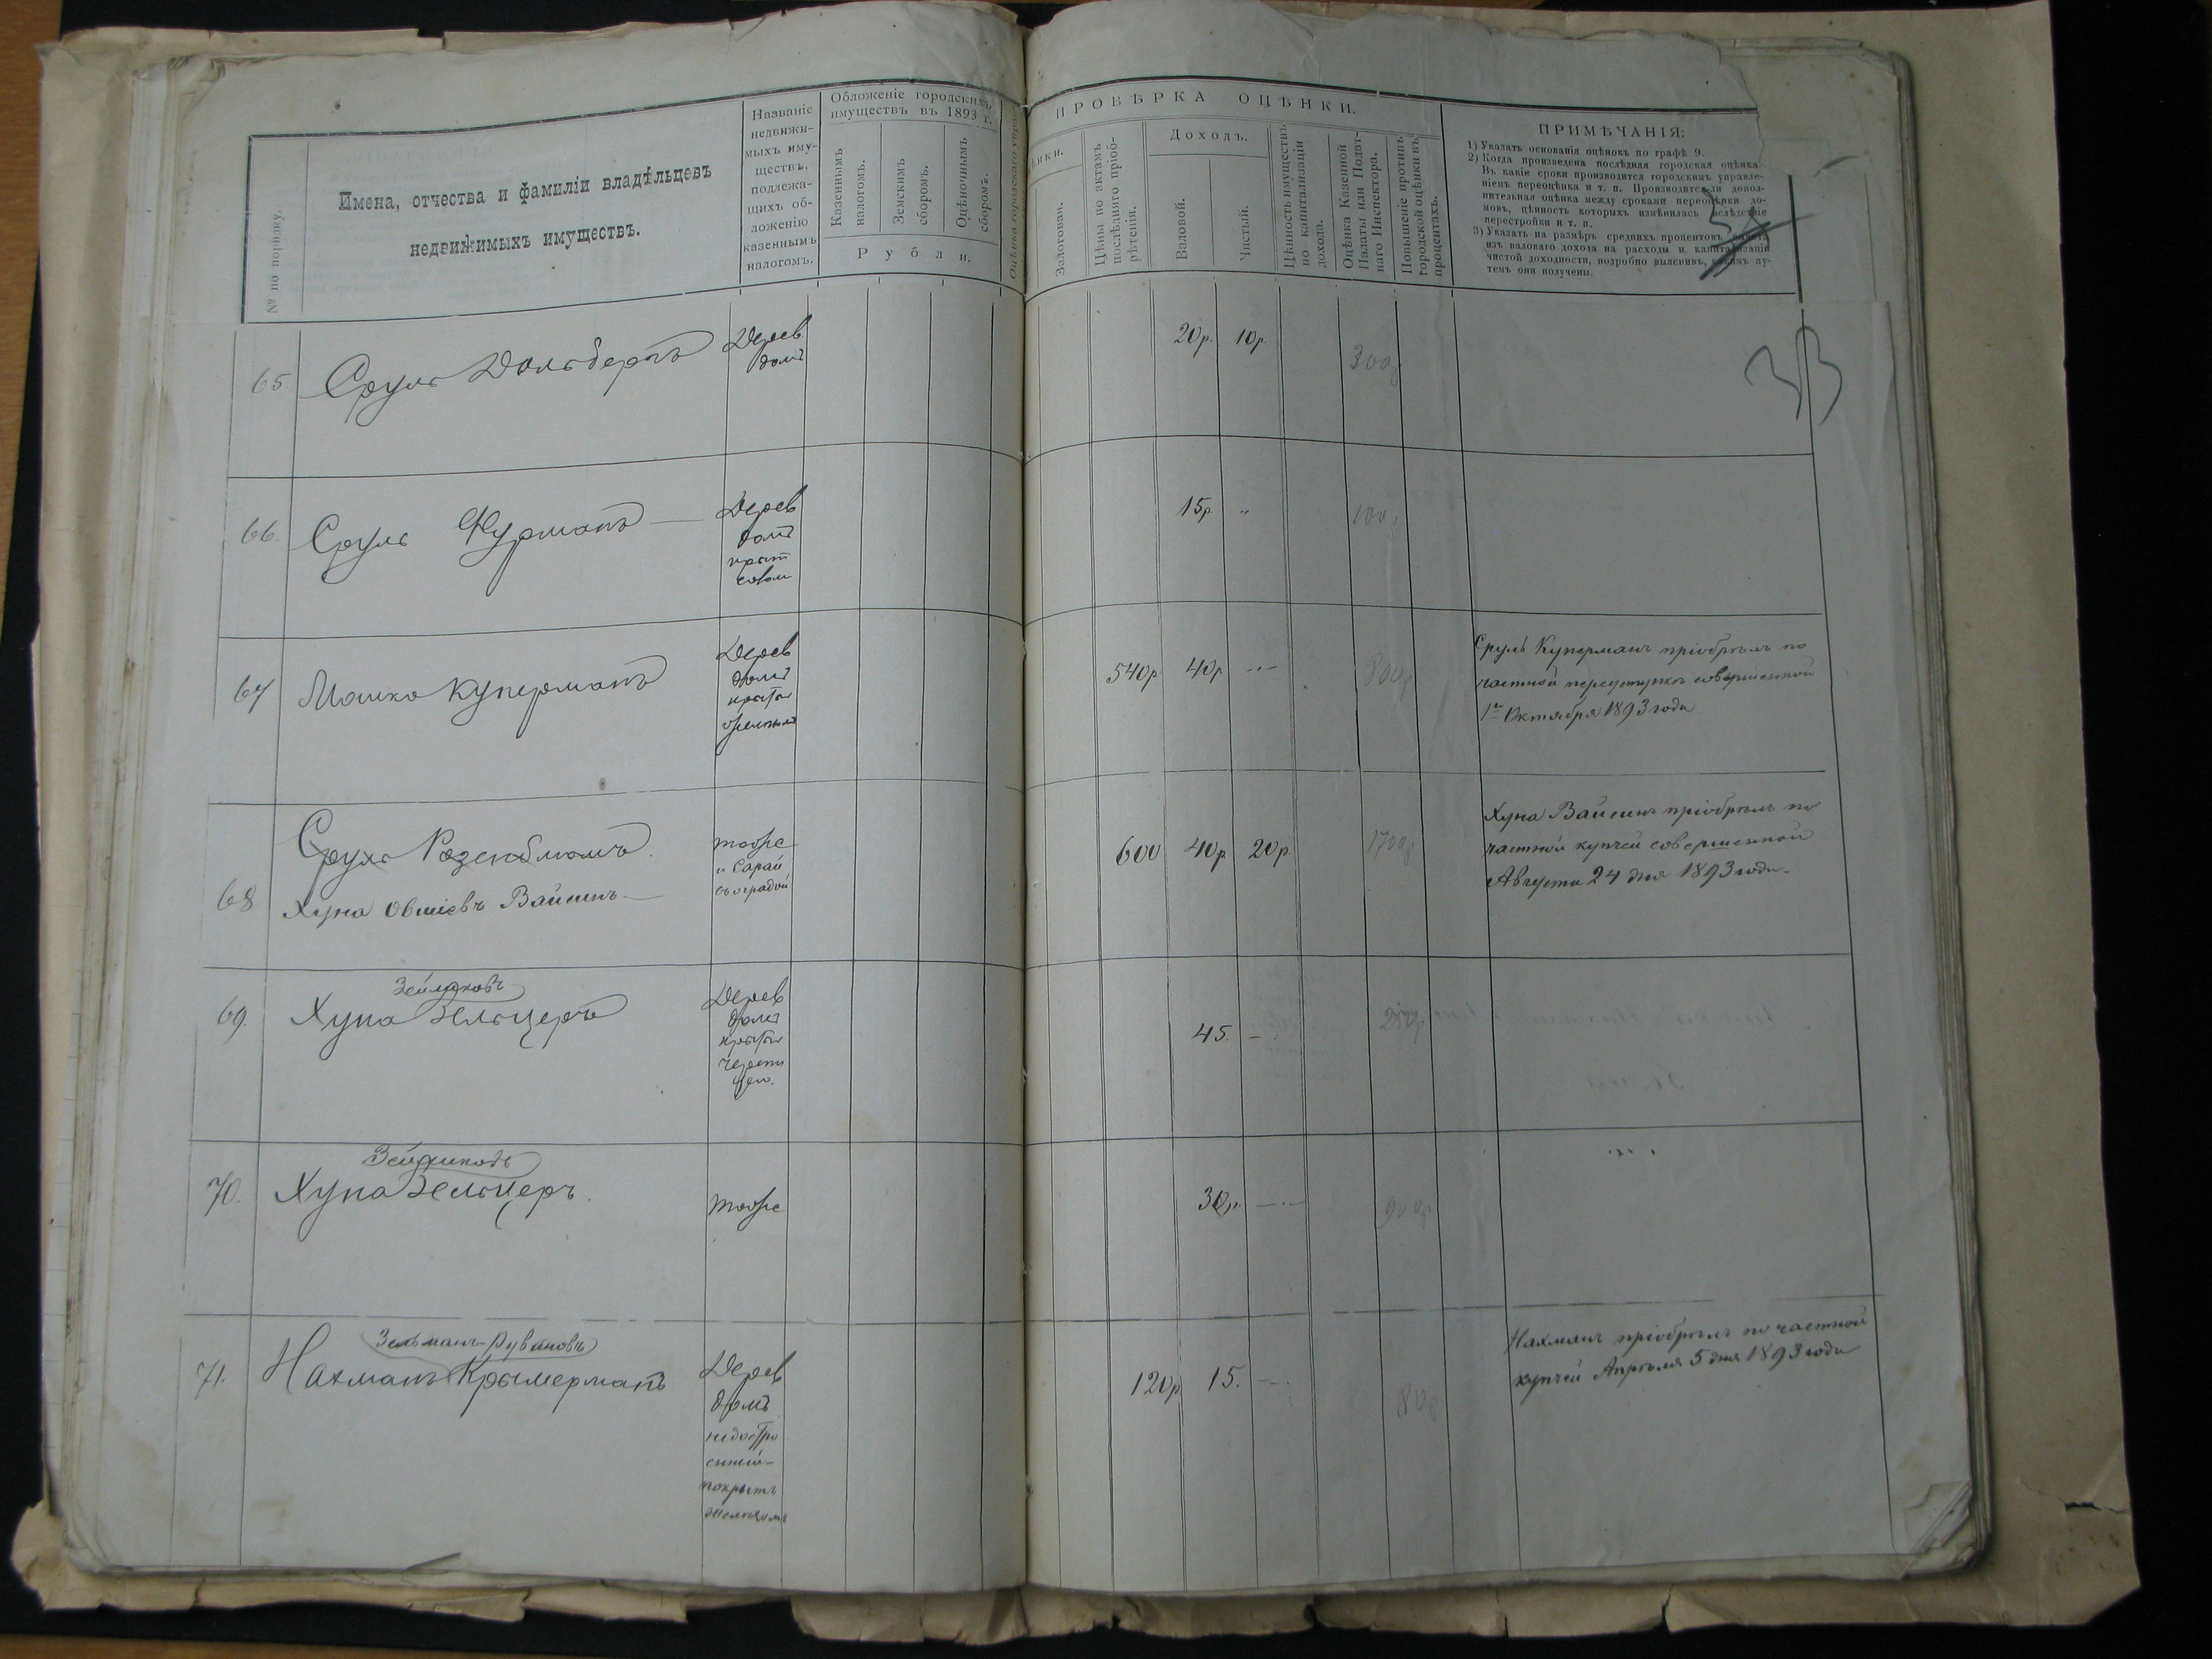 № по порядку.
Имена, отчества и фамиліи владѣльцевъ
недвижимыхъ имуществъ.
Названіе
недвижи-
мыхъ иму-
ществъ,
подлежа-
щихъ об-
ложенію
казеннымъ
налогомъ.
Обложеніе городскихъ
имуществъ въ 1893 г.
Казеннымъ
налогомъ.
Земскимъ
сборомъ.
Оцѣночнымъ
сборомъ.
Рубли.
Оцѣнка городского
ПРОВѢРКА ОЦѢНКИ.
Залогован.
Цѣны по актамъ
послѣдняго пріоб-
рѣтенія.
Доходъ.
Валовой.
Чистый.
Цѣнность имуществъ
по капитализаціи
дохода.
Оцѣнка Казенной
Палаты или Подат-
наго Инспектора.
Повышеніе противъ
городской оцѣнки въ
процентахъ.
ПРИМѢЧАНІЯ:
1) Указать основанія оцѣнокъ по графѣ 9.
2) Когда произведена послѣдняя городская оцѣнка
Въ какіе сроки производится городскимъ управле-
ніемъ переоцѣнка и т. п. Производится ли допол-
нительная оцѣнка между сроками переоцѣнки до-
мовъ, цѣнность которыхъ измѣнилась вслѣдствіе
перестройки и т. п.
3) Указать на размѣръ среднихъ процентовъ
изъ валоваго дохода на расходы и капитализаціи
чистой доходности, подробно выяснивъ, какимъ пу-
темъ они получены.
33
65. Сруль Дольбергъ Дерев
домъ
20р. 10р. 300р
66. Сруль Фурманъ Дерев
домъ
15р. " 100р
67 Мошко Куперманъ Дерев
домъ
540р 40р 300р
Сруль Куперманъ пріобрѣлъ по
частной переуступкѣ совершенной
1го Октября 1893 года
68 Сруль Розенблюмъ.
Хуна Овшіевъ Вайсинъ
тоже
и Сарай
съ оградой
600 40р 20р. 1700р
Хуна Вайсинъ пріобрѣлъ по
частной купчей совершенной
Августа 24 дня 1893 года.
69. Зейликовъ
Хуна Зельцеръ Дерев
домъ
45.
70. Зейликовъ
Хуна Зельцеръ. тоже
30р. 900р
71. Зельманъ-Рувановъ
Нахманъ Крымерманъ Дерев
домъ
недостро
енный
покрытъ
120р 15. 80р
Нахманъ пріобрѣлъ по частной
купчей Апрѣля 5 дня 1893 года